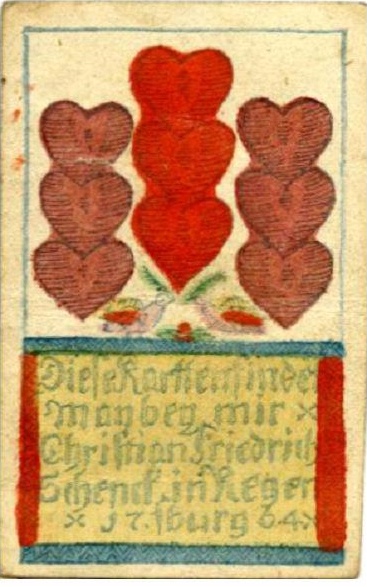 Diese Karttensindet
man bey mir ×
Christian Friedrich
Schenck in Regen
× 17. sburg 64 ×